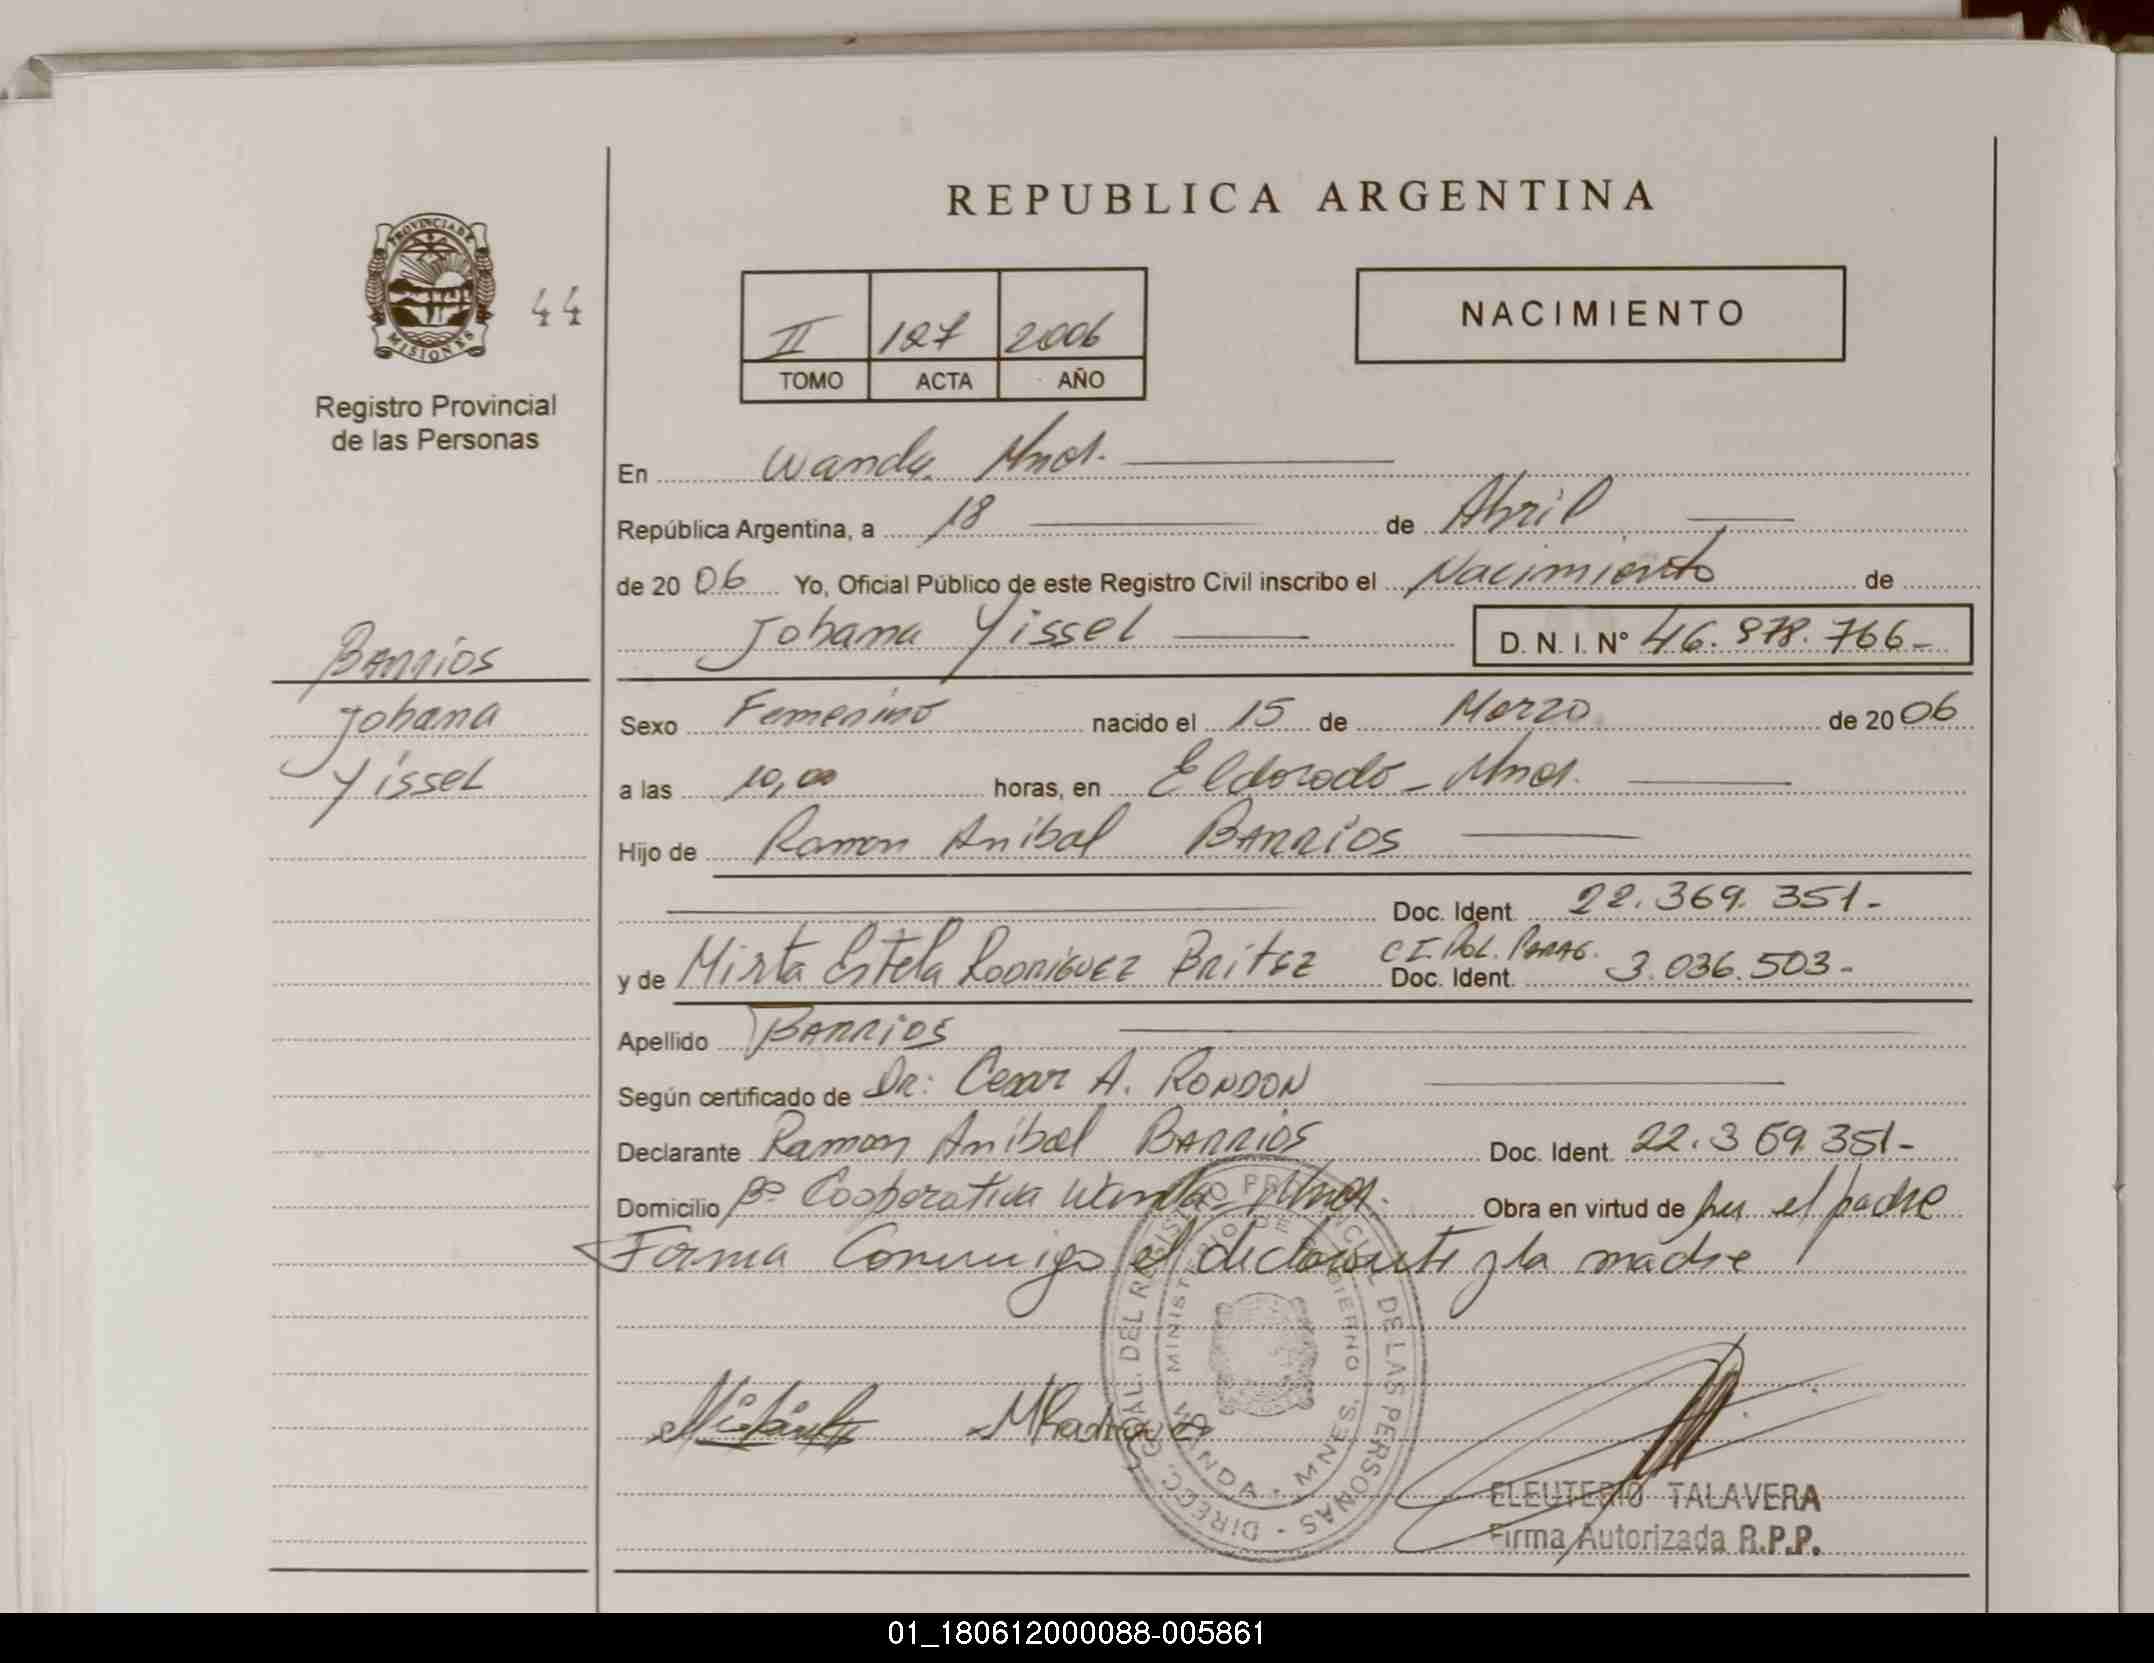 REPUBLICA ARGENTINA
PROVINCIA DE MISIONES
44
Registro Provincial
de las Personas
II 127 2006
TOMO ACTA AÑO
NACIMIENTO
En Wanda Mnes.
República Argentina, a 18 de Abril
de 2006 Yo, Oficial Público de este Registro Civil inscribo el Nacimiento de
Johana Yissel D. N. I. N° 46.978.766-
BARRIOS
Johana
Yissel
Sexo Femenino nacido el 15 de Marzo de 2006
a las 10,00 horas, en Eldorado - Mnes.
Hijo de Ramon Anibal BARRIOS
Doc. Ident. 22.369.351-
y de Mirta Estela RODRIGUEZ BRITEZ C I. POL. PARAG. Doc. Ident. 3.036.503-
Apellido BARRIOS
Según certificado de DR: Cesar A. RONDON
Declarante Ramon Anibal BARRIOS Doc. Ident. 22.369.351-
Domicilio Bº Cooperativa Wanda Mnes. Obra en virtud de ser el padre
Firma Conmigo el declarante y la madre
DIRECC. GRAL. DEL REGISTRO PROVINCIAL DE LAS PERSONAS
MINISTERIO DE GOBIERNO
WANDA - MNES.
MRodriguez
ELEUTERIO TALAVERA
Firma Autorizada R.P.P.
01_180612000088-005861